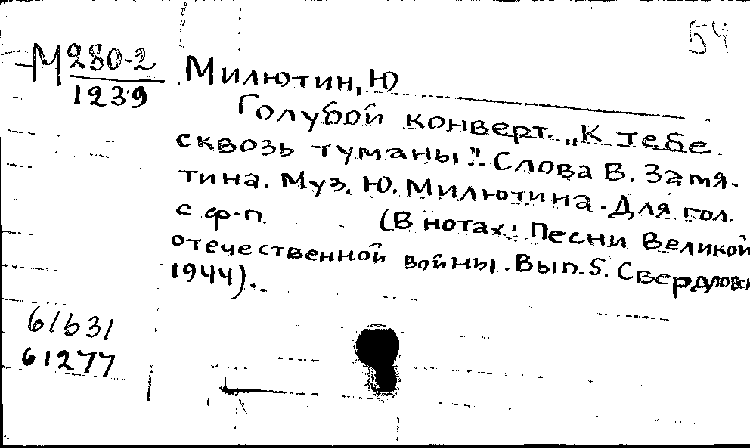 54
М280-2
1239
Милютин, Ю
Голубой конверт. „К тебе
сквозь туманы." Слова В. Замя-
тина. Муз. Ю. Милютина. Для гол.
с ф-п. (В нотах: Песни Великой
отечественной войны. Вып. 5. Свердловск
1944).
61631
61277